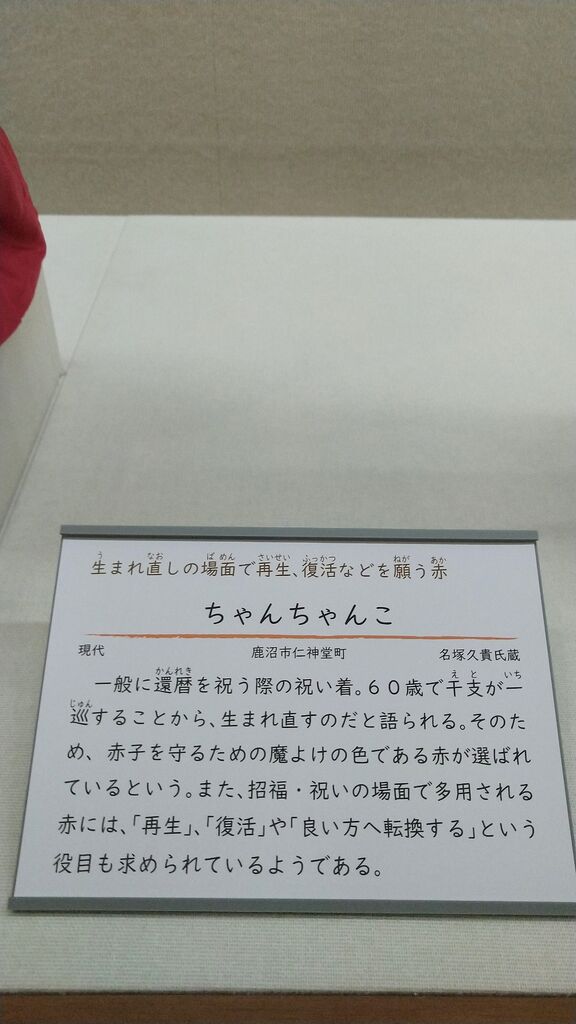 生まれ直しの場面で再生、復活などを願う赤
ちゃんちゃんこ
現代 鹿沼市仁神堂町 名塚久貴氏蔵
一般に還暦を祝う際の祝い着。60歳で干支が一
巡することから、生まれ直すのだと語られる。そのた
め、赤子を守るための魔よけの色である赤が選ばれ
ているという。また、招福・祝いの場面で多用される
赤には、「再生」、「復活」や「良い方へ転換する」という
役目も求められているようである。